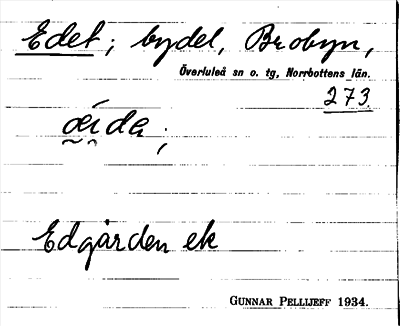 Edet; bydel, Brobyn,
Överluleå sn o. tg, Norrbottens län.
273.
œ́i da;
Edgården ek
GUNNAR PELLIJEFF 1934.